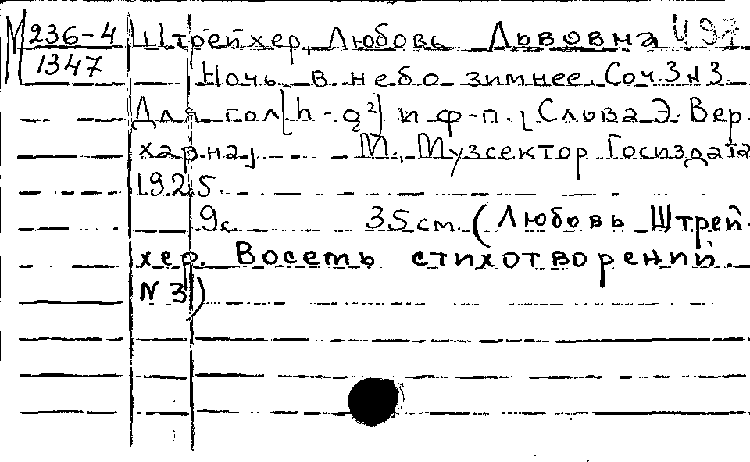 М 236-4 Штрейхер, Любовь Львовна
1347 Ночь в небо зимнее. Соч. 3 N 3
Для гол[h-g²] и ф-п. [Слова Э. Вер-
харна]. М., Музсектор Госиздата
1925.
9с. 35 см. (Любовь Штрей-
хер. Восемь стихотворений.
N 3)